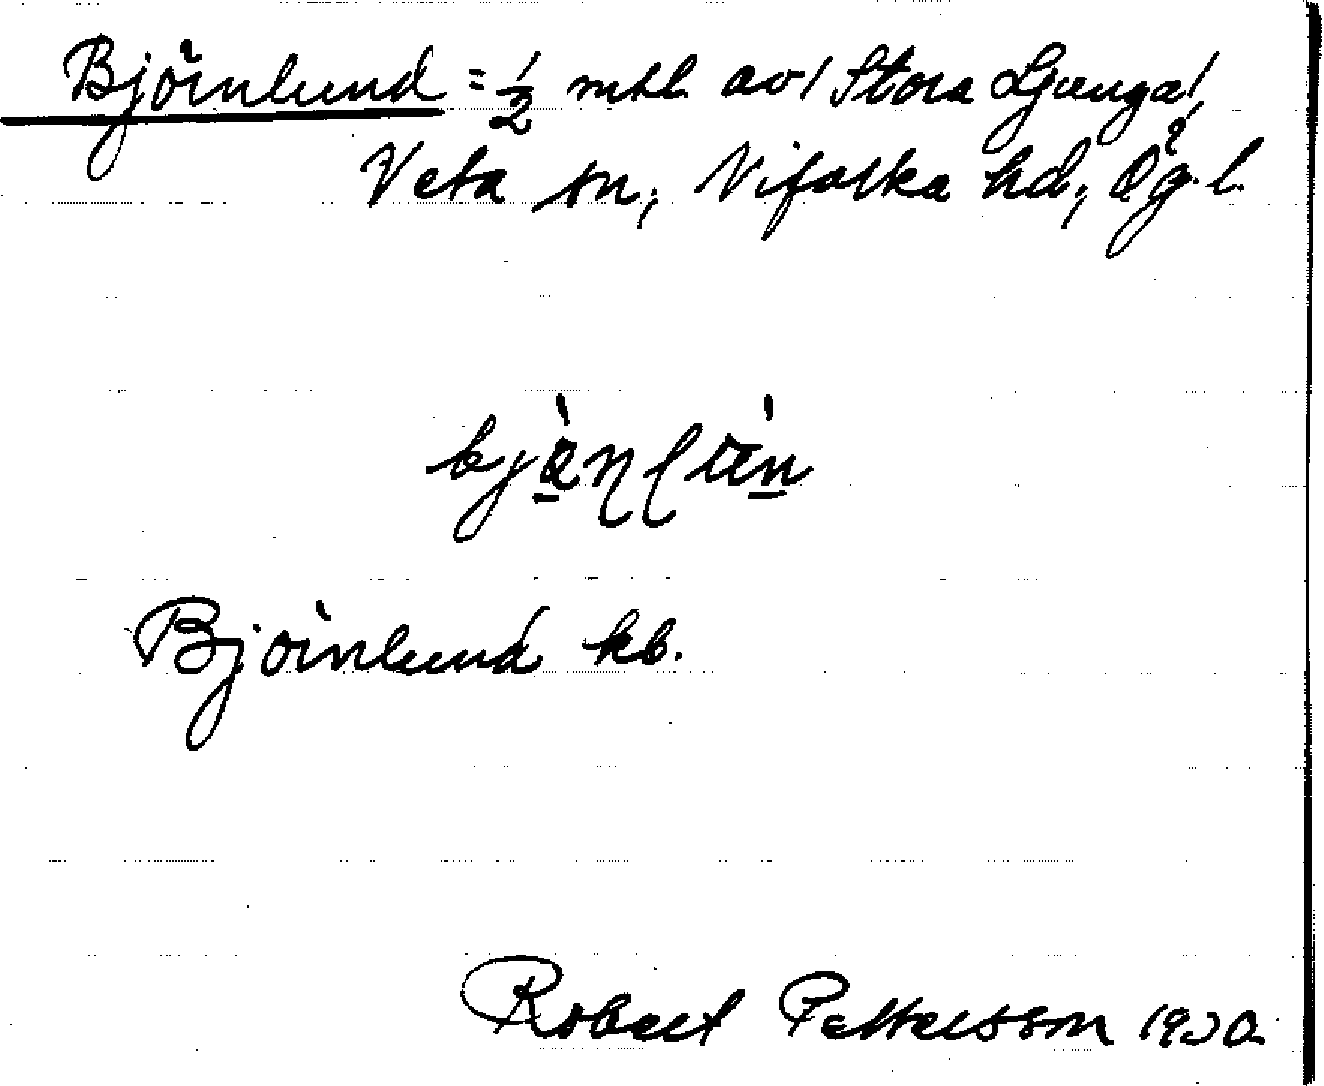 Björnlund = 1/2 mtl. av Stora Ljunga,
Veta sn, Vifolka hd, Ög. l.
Björnlund kb.
Robert Pettersson 1930.